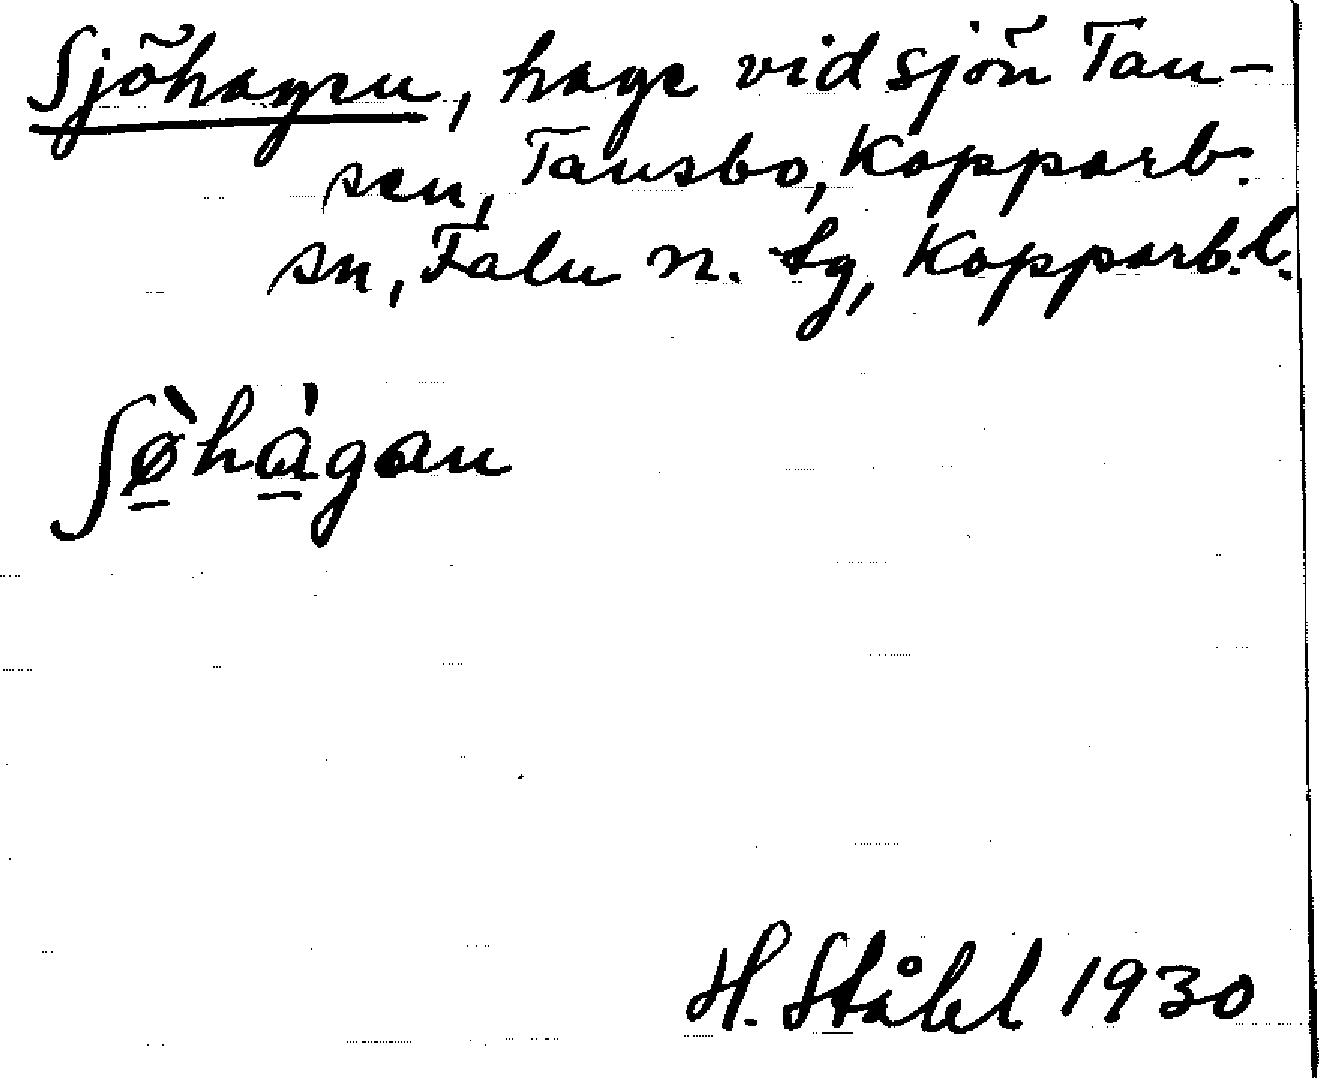 Sjöhagen, hage vid sjön Tan-
sen, Tansbo, Kopparb.
sn, Falu n. tg, Kopparb.l.
ʃø̠̀hà̠gan
H. Ståhl 1930